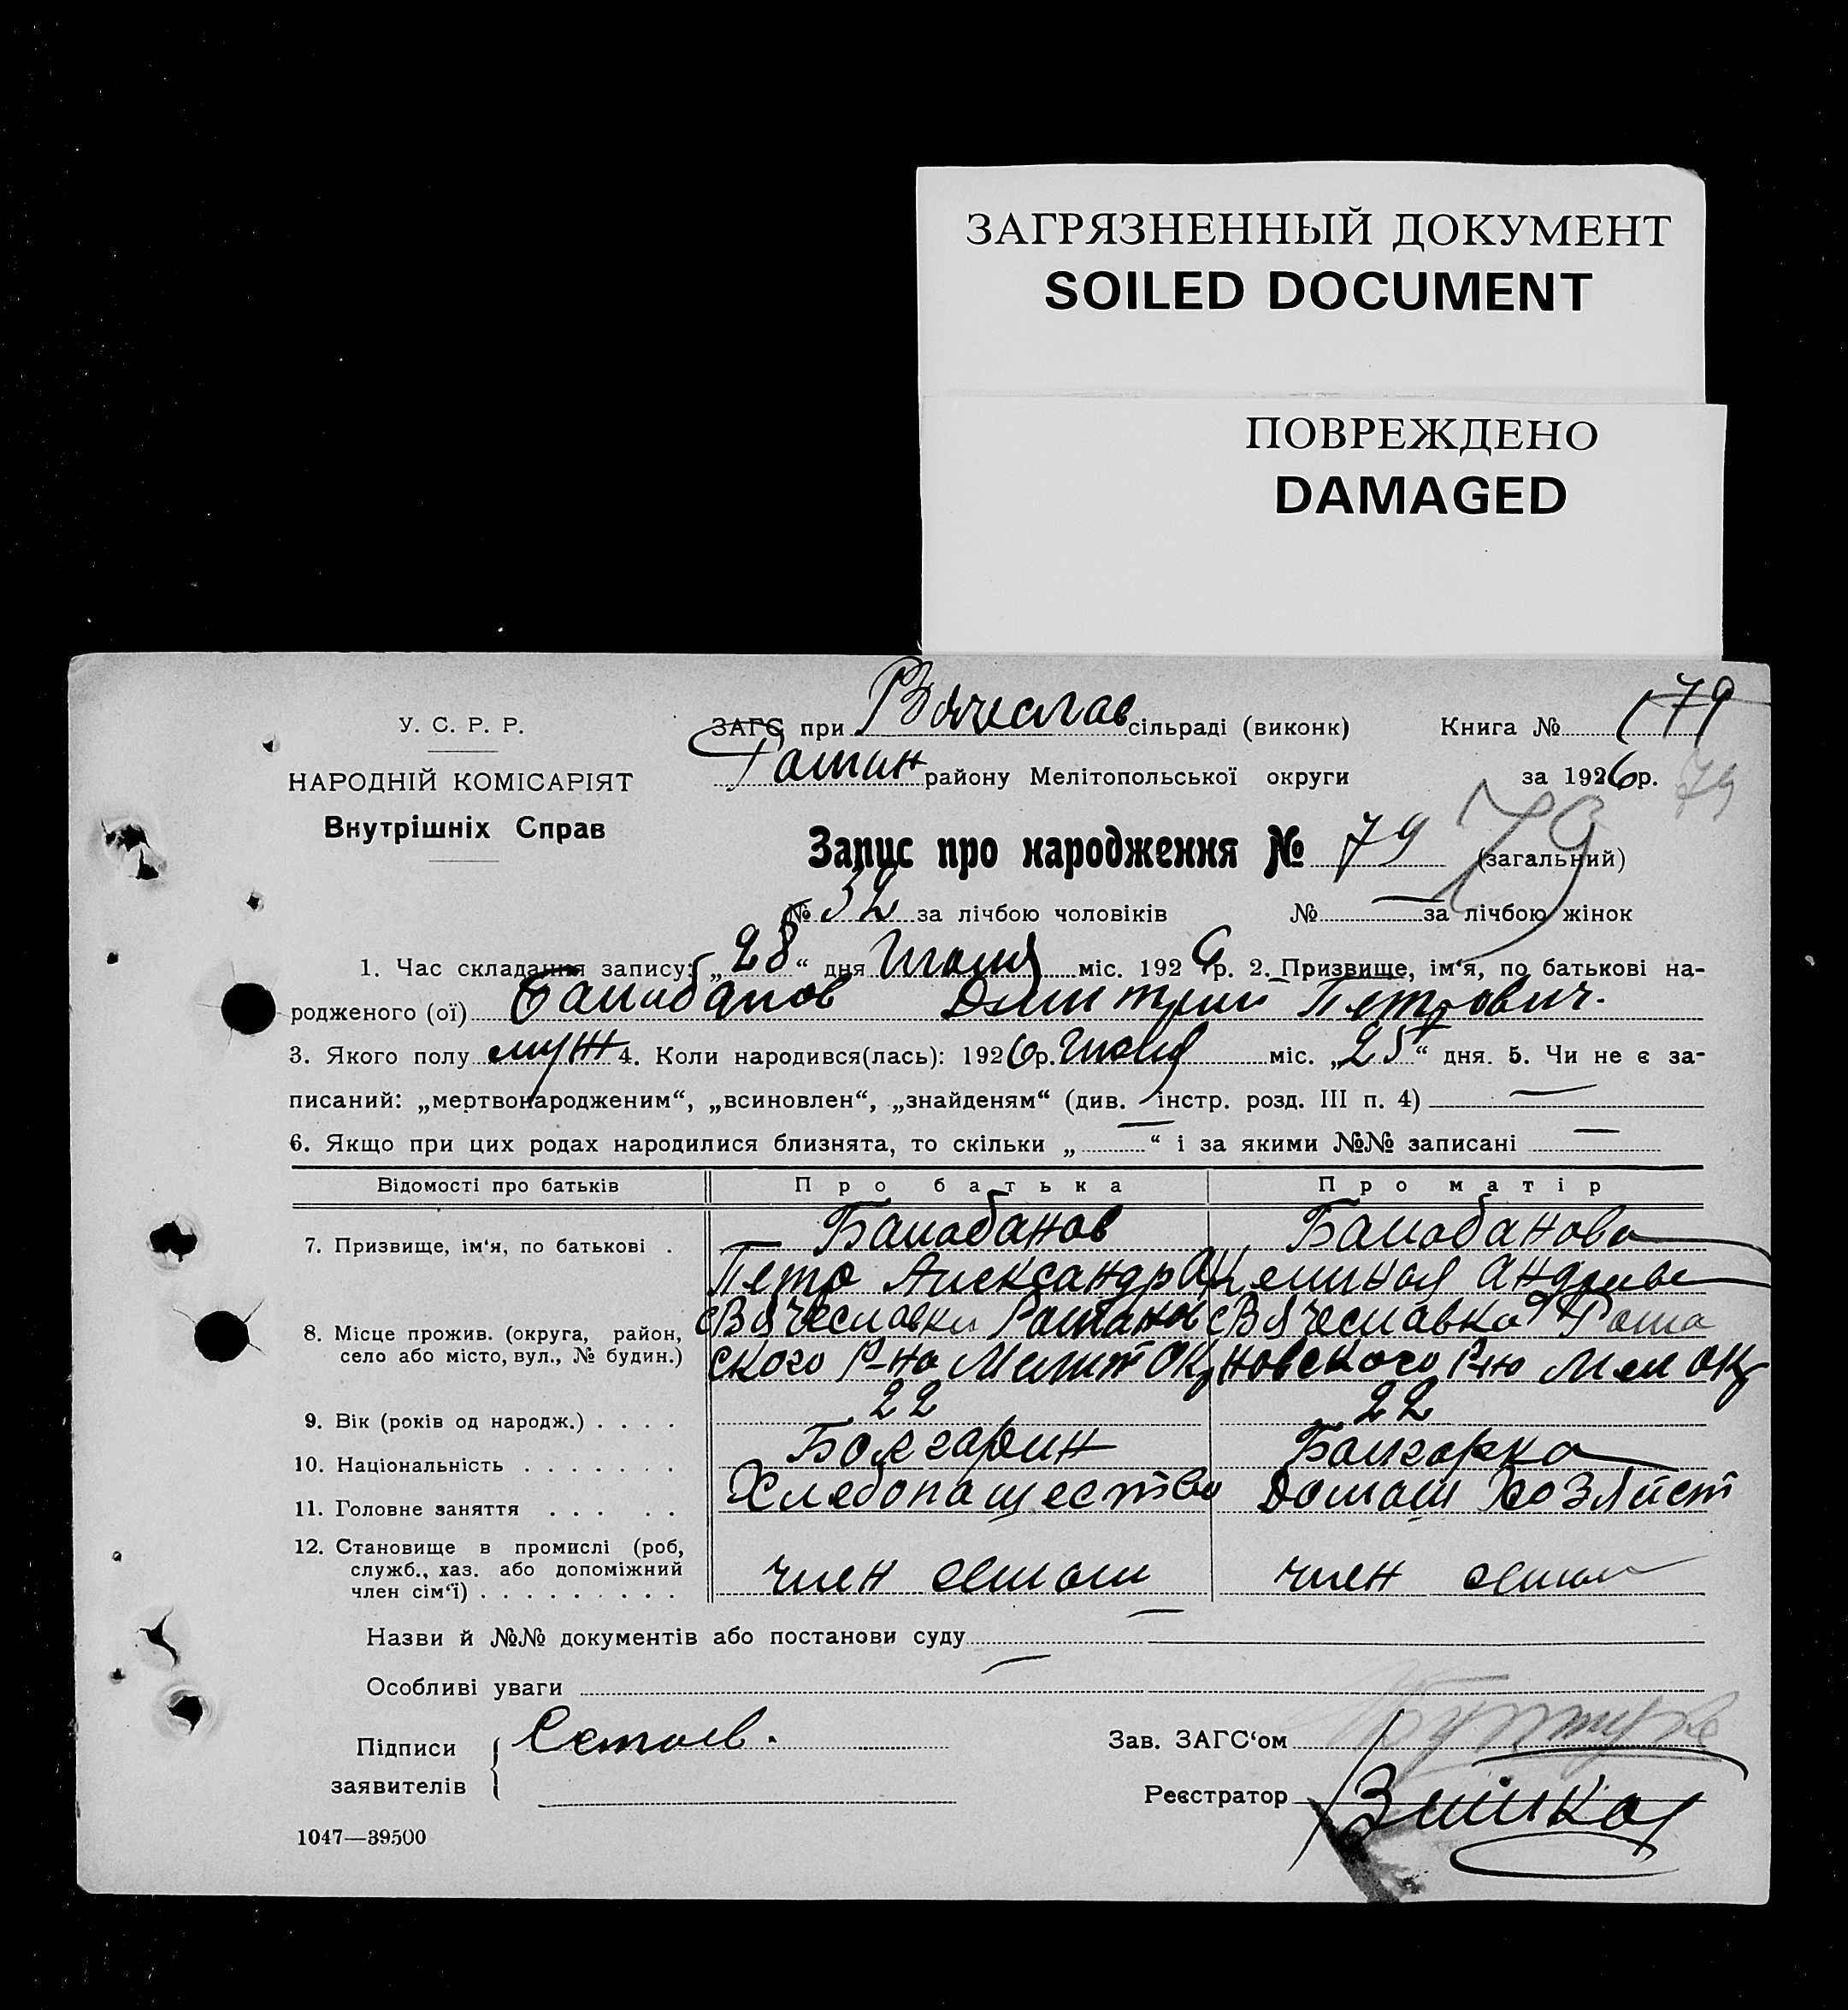 ЗАГРЯЗНЕННЫЙ ДОКУМЕНТ
SOILED DOCUMENT
ПОВРЕЖДЕНО
DAMAGED
У. С. Р. Р.
НАРОДНІЙ КОМІСАРІЯТ
Внутрішніх Справ
ЗАГС при Вячеслав сільраді (виконк) Книга № 179
району Мелітопольської округи за 1926 р. 79
Запис про народження № 79 (загальний) 79
№ 32 за лічбою чоловіків № — за лічбою жінок
1. Час складання запису: „28“ дня Июня міс. 1926 р. 2. Призвище, ім‘я, по батькові на-
родженого (ої) Балабанов Дмитрий Петрович.
3. Якого полу муж 4. Коли народився(лась): 1926 р. Июня міс. „25“ дня. 5. Чи не є за-
писаний: „мертвонародженим“, „всиновлен“, „знайденям“ (див. інстр. розд. III п. 4) —
6. Якщо при цих родах народилися близнята, то скільки „ — “ і за якими №№ записані —
Відомості про батьків Про батька Про матір
7. Призвище, ім‘я, по батькові . Балабанов Балабанова
Петр Александр Андрив
8. Місце прожив. (округа, район, с Вячеславка с Вячеславка Рома
село або місто, вул., № будин.) ского Р-на Мелит Окр новского Р-на Мел Окр
9. Вік (років од народж.) . . . . 22 22
10. Національність . . . . . . . Болгарин Болгарка
11. Головне заняття . . . . . Хлебопашество Домаш Хозяйст
12. Становище в промислі (роб,
служб., хаз. або допоміжний
член сім‘ї) . . . . . . . . . член семьи член семьи
Назви й №№ документів або постанови суду —
Особливі уваги —
Підписи
заявителів
Зав. ЗАГС‘ом
Реєстратор
1047—39500